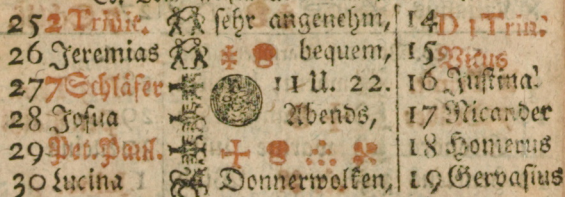 25 2 Tridie. sehr angenehm, 14 D 1 Trin.
26 Jeremias bequem, 15 Vitus
27 7Schläfer 11 U. 22. 16 Justina
28 Josua Abends, 17 Nicander
29 Pet. Paul. 18 Homerus
30 Lucina Donnerwolken, 19 Gervasius